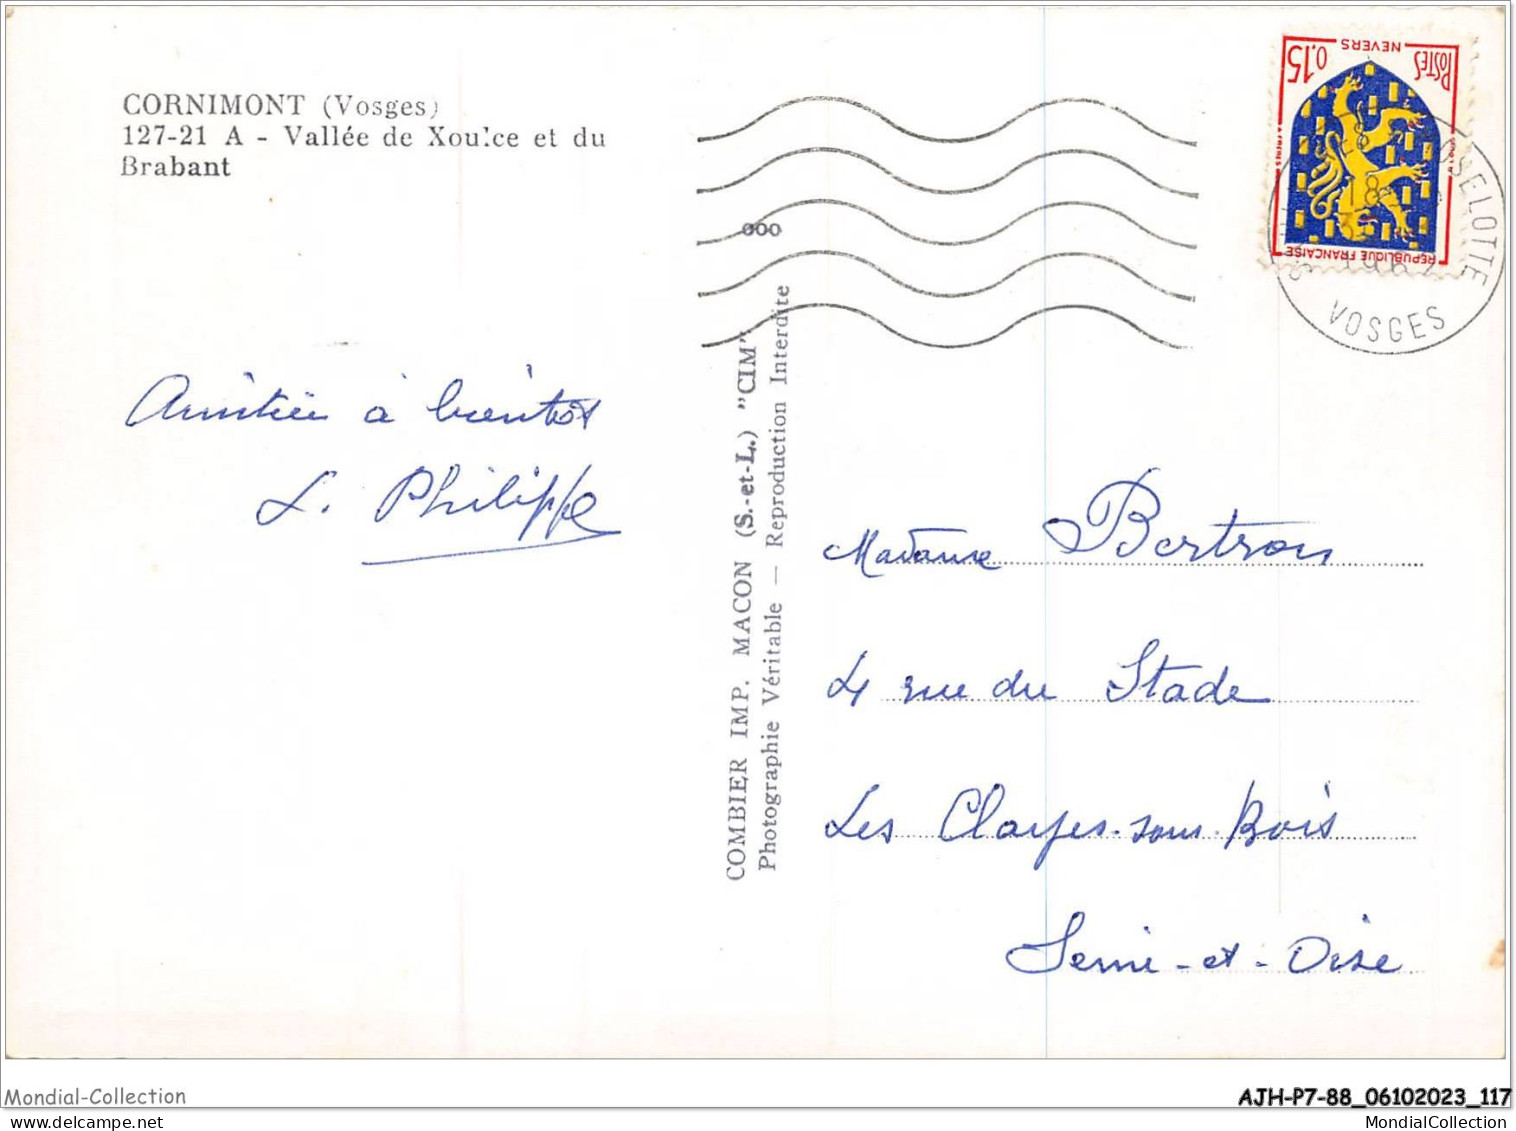 CORNIMONT (Vosges)
127-21 A - Vallée de Xoulce et du
Brabant
Amitiés à bientôt
L. Philippe
COMBIER IMP. MACON (S.-et-L.) "CIM"
Photographie Véritable — Reproduction Interdite
000
NEVERS
0,15
POSTES
REPUBLIQUE FRANÇAISE
OSELOTTE
VOSGES
Madame Bertron
4 rue du Stade
Les Clayes-sous-Bois
Seine-et-Oise
Mondial-Collection
AJH-P7-88_06102023_117
MondialCollection